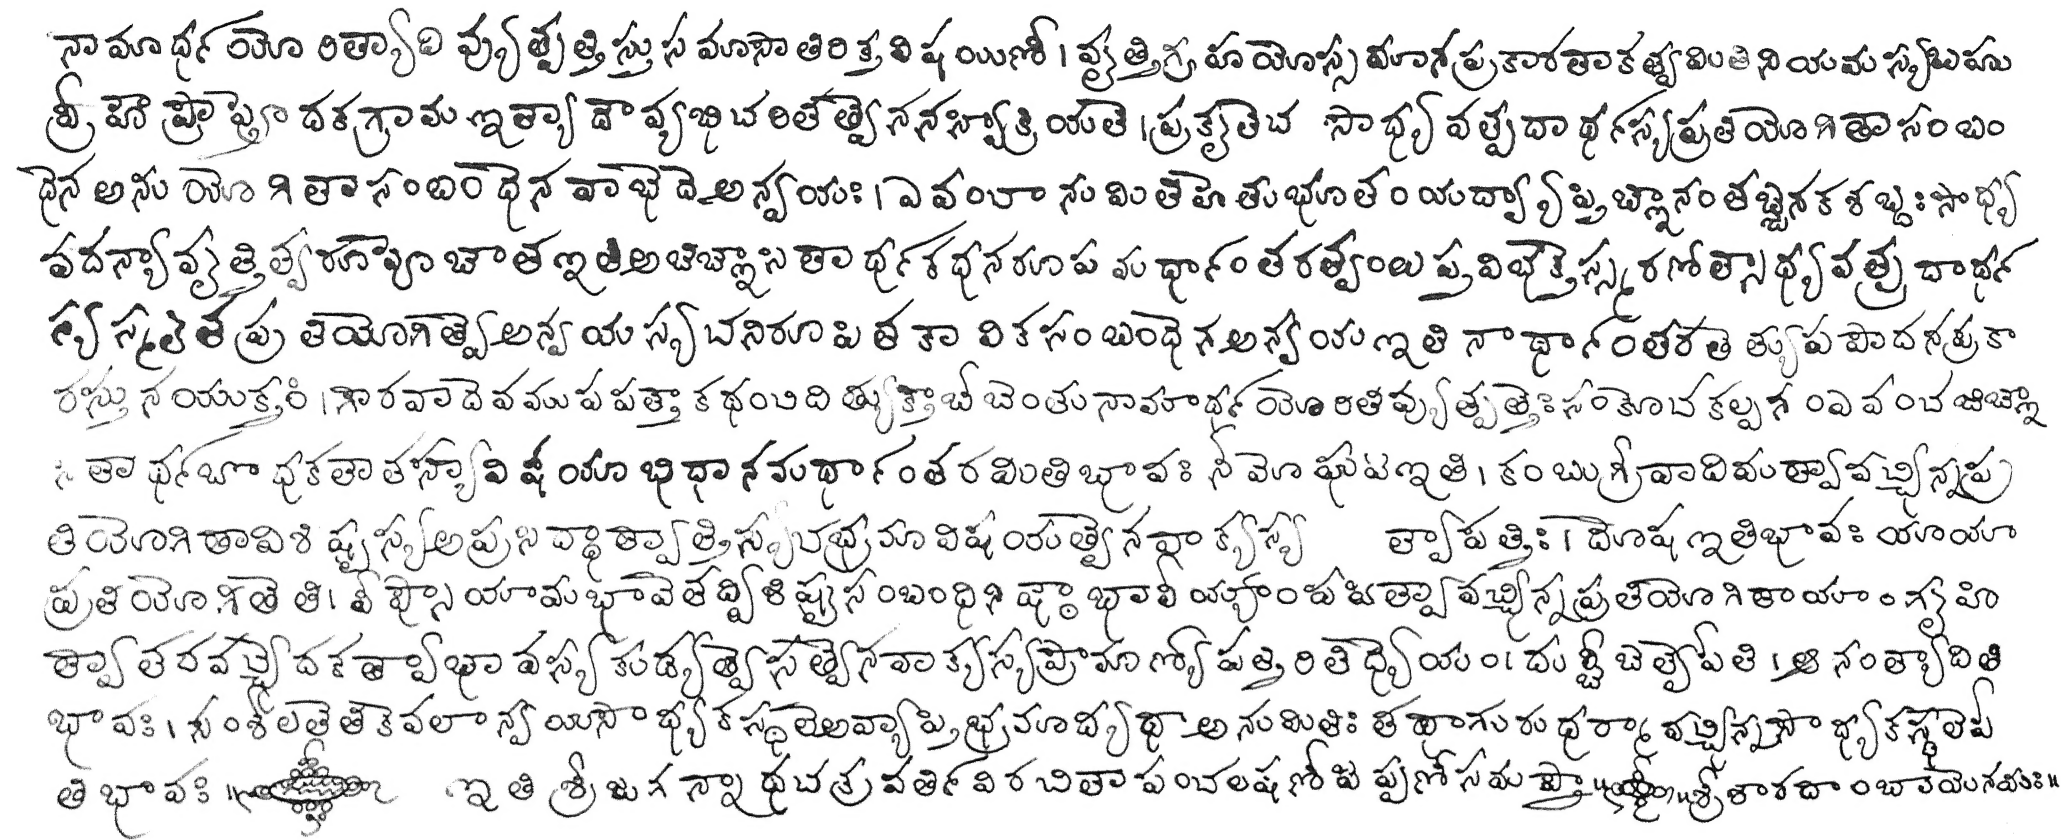 నామార్థయో రిత్యాది వ్యుత్పత్తి స్తు స మాసాతిరిక్త విష యిణీ। వృత్తిగ్ర హయోస్స మానప్రకారతాకత్వ మితి నియమ స్యబహు
వ్రీ హౌ ప్రాప్తో దకగ్రామ ఇత్యా దౌ వ్యభిచ రితత్వేన నస్వీక్రియతే। ప్రకృతేచ సాధ్య వత్పదా ర్థస్యప్రతియోగితా సం బం
ధేన అను యో గితా సంబంధేన వాభేదే అన్వయః। ఏ వంచా ను మితిహేతుభూతం యద్వ్యా ప్తి జ్ఞానం తజ్జనకశబ్దః సాధ్య
వదన్యా వృత్తిత్వ రూపో జాత ఇతి అ జిజ్ఞాసితా ర్థకథనరూప మర్థాంతరత్వంలు ప్త విభక్తేస్స్మరణోత్సాధ్యవత్ప దార్థ
స్య స్మృతేత ప్ర తియోగిత్వే అన్వయ స్యచనిరూపి తకా దికసం బంధేన అన్వయ ఇతి నార్థాంతరతే త్యుపపాదనప్రకా
రస్తు నయుక్తః। గౌరవాదేవమను పపత్తా కథంచిది త్యుక్తా చేచింతు నామార్థయో రితి వ్యుత్పత్తేః సంకోచకల్పనం ఏ వంచ జిజ్ఞా
సి తా ర్థబోధకతాతస్యా విషయా భిధానమర్థాంతరమితి భావః నీలో ఘటఇతి। కంబుగ్రీవాదిమత్వావచ్ఛిన్నప్ర
తియోగితావిశి ష్టస్యఅప్రసిద్ధత్వాత్తిస్యచభ్రమావిషయత్వేనవాక్యస్య త్వాపత్తిః। దోషఇతిభావః యాయా
ప్రతియోగితేతి। వీప్సాయామభావేతద్విశిష్టసంబంధినిష్ఠాభావీయఘటత్వావచ్ఛిన్నప్రతియోగితాయాంగృహీ
త్వాతదవచ్ఛేదకత్వాభావస్యకుడ్యత్వేసత్వేనవాక్యస్యప్రామాణ్యోపత్తిరితి ధ్యేయం। దుష్టేచేత్యేపతి। ఆ నంత్యాదితి
భావః। సంశీలతేతికేవలాన్వయిసాధ్యకస్థలేఅవ్యాప్తిభ్రమాద్యథా అనుమితిః తథాగురుధర్మావచ్ఛిన్నసాధ్యకస్థలేపీ
తి భావః॥ ఇతి శ్రీజగన్నాథచక్రవర్తివిరచితాపంచలక్షణీటిప్పణీసమాప్తా॥ శ్రీశారదాంబాయైనమః॥